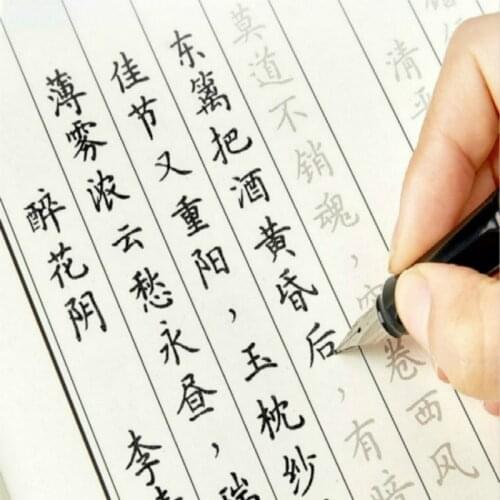 醉花阴 李
薄雾浓云愁永昼，瑞
佳节又重阳，玉枕纱
东篱把酒黄昏后，有暗
莫道不销魂，帘卷西风
清平